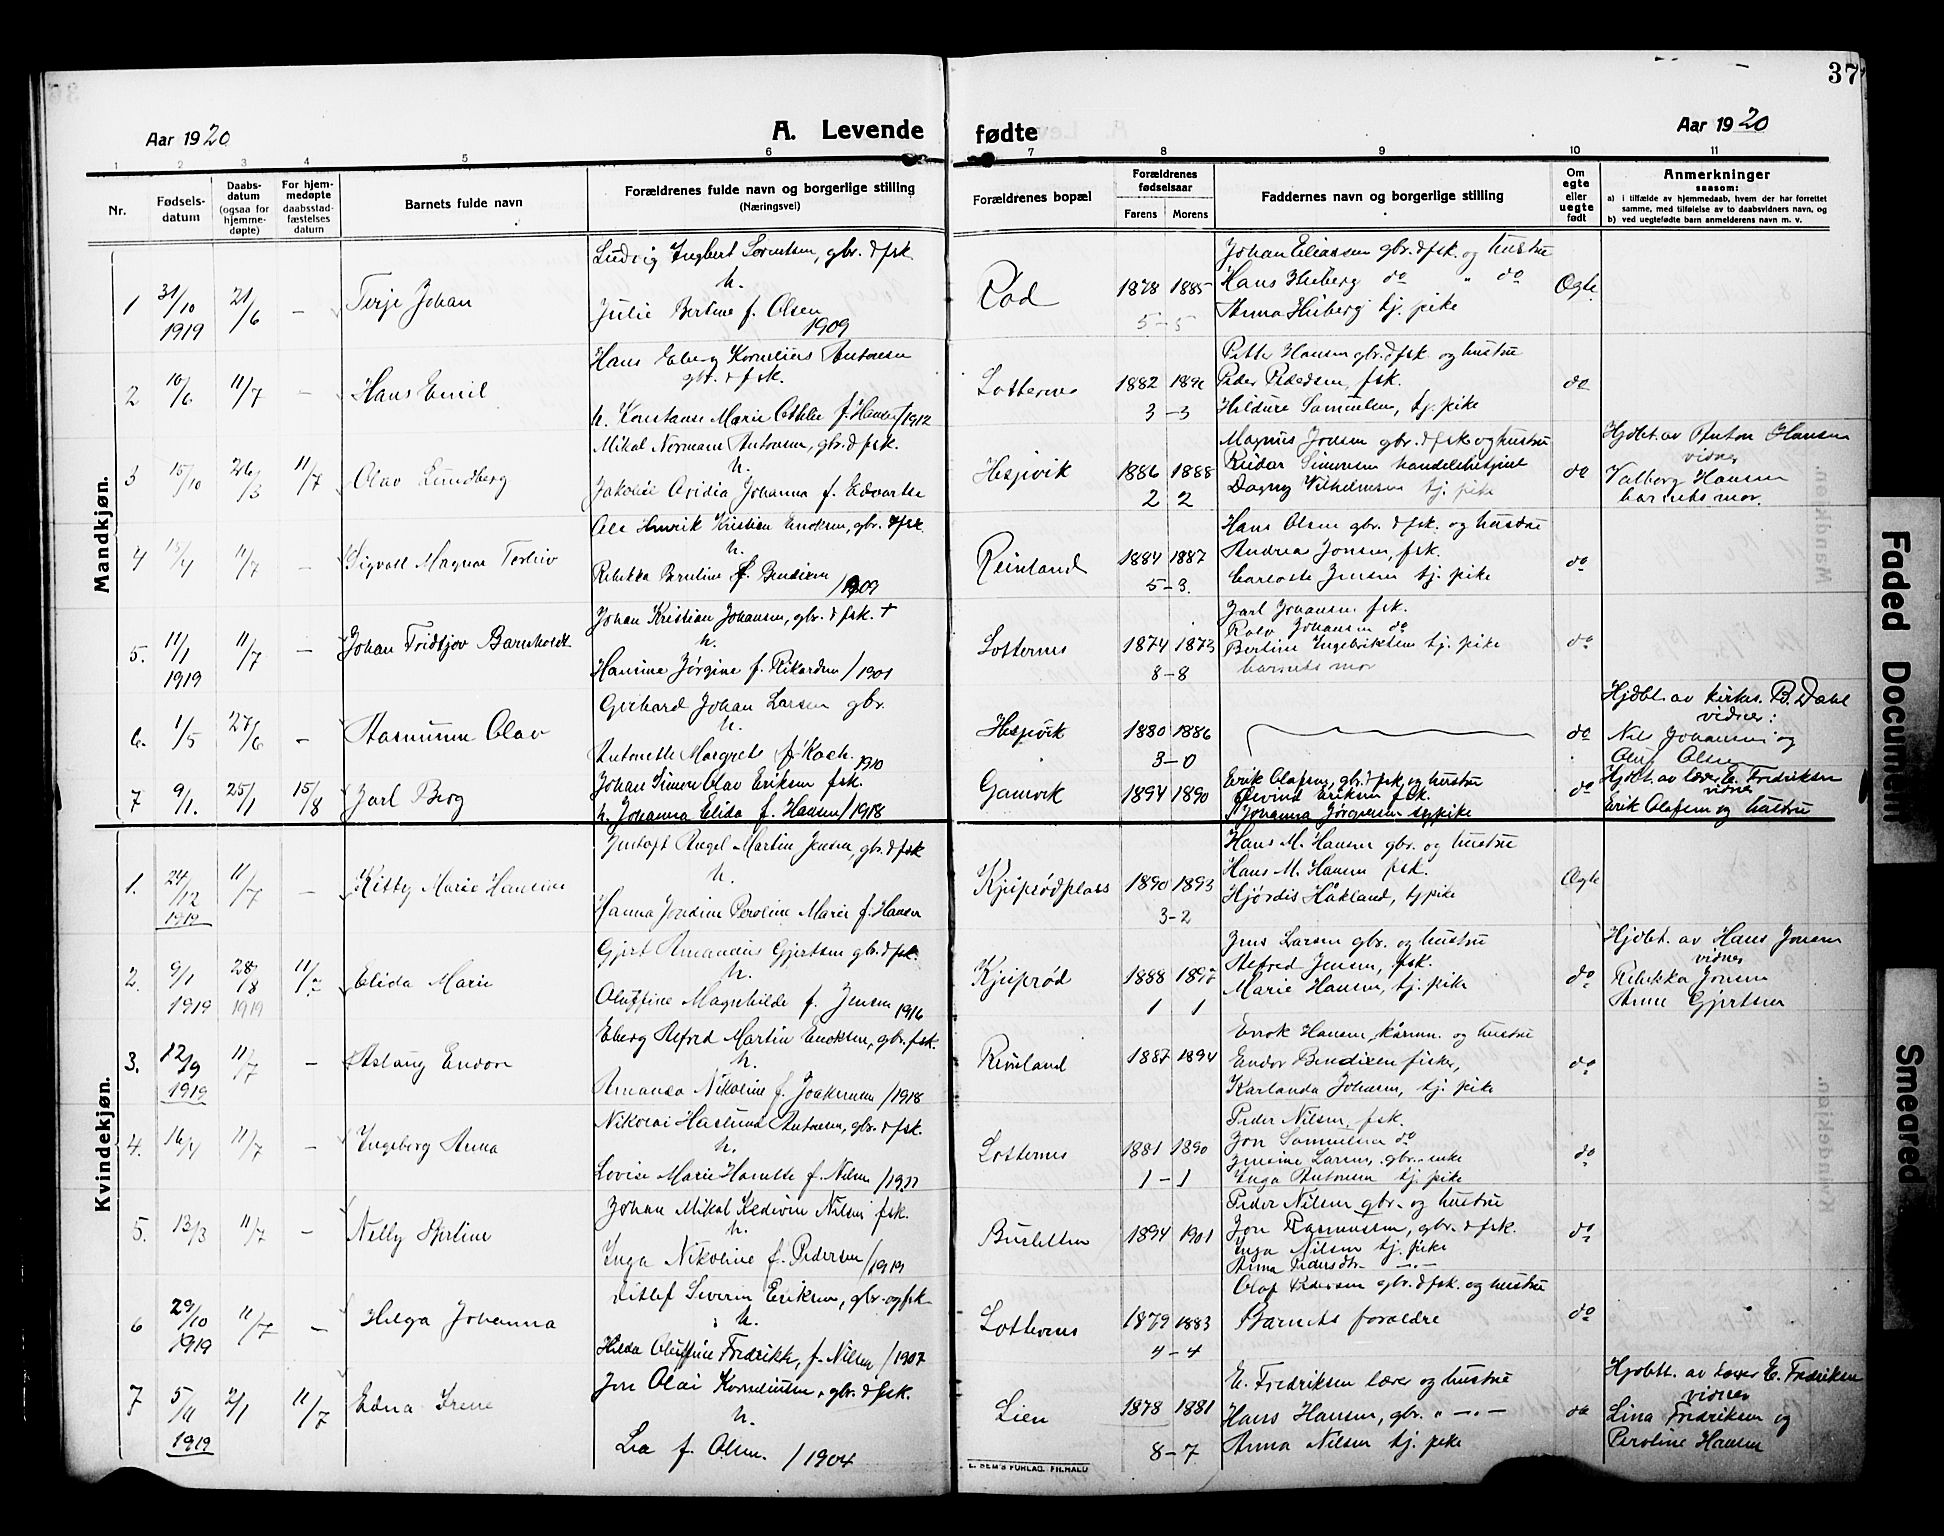 37
Aar 1920
A. Levende
fødte
Aar 1920
1 2 3 4 5 6 7 8 9 10 11
Nr.
Fødsels-
datum
Daabs-
datum
(ogsaa for
hjemme-
døpte)
For hjem-
medøpte
daabsstad-
fæstelses
datum
Barnets fulde navn
Forældrenes fulde navn og borgerlige stilling
(Næringsvei)
Forældrenes bopæl
Forældrenes
fødselsaar
Farens Morens
Faddernes navn og borgerlige stilling
Om
egte
eller
uegte
født
Anmerkninger
saasom:
a) i tilfælde av hjemmedaab, hvem der har forrettet
samme, med tilføielse av to daabsvidners navn, og
b) ved uegtefødte barn anmelderens navn m. v.
Mandkjøn.
1 31/10 1919 21/6 – Terje Johan
Ludvig Ingbert Sorentsen, gbr. & fsk.
h.
Julie Bertine f. Olsen
1909
1878 1885
5 – 5
Johan Eliassen gbr. & fsk. og hustru
Hans Huberg do " do
Anna Huberg tj. pike
Ægte
2 10/6 11/7 – Hans Emil
Hans Eberg Kornelius Antonsen
gbr. & fsk.
h. Konstanse Marie f. Hansen /1912
Lotternes
1882
3 – 3
Petter Hansen gbr. & fsk. og hustru
Peder Pedersen, fsk.
Hildure Samuelsen, tj. pike
do
3 15/10 26/3 11/7 Olav Lundberg
Mikal Normann Antonsen, gbr. & fsk.
h.
Johanna f. Edvartsen
Hespvik
1886 1888
2 2
Magnus Jonsen gbr. & fsk og hustru
Reidar Simonsen handelsbetjent
Dagny Vilhelmsen tj. pike
do
Hjdbt. av Anton Hansen
vidner
Valborg Hansen
barnets mor.
4 15/4 11/7 – Sigvall Magnar Torleiv
Ole Henrik Kristian Enoksen, gbr. & fsk
h.
Rebekka Berntine f. Bendixen
/1909
Reinland
1884 1887
5 – 3.
Hans Olsen gbr. & fsk. og hustru
Andrea Jonsen, fsk.
Jensen tj. pike
do
5. 11/1 1919 11/7 – Johan Fridtjov Barnholdt
Johan Kristian Johansen, gbr. & fsk. +
h.
Hansine Jørgine f. Rikardsen /1901
Lotternes
1874 1873
8 – 8
Jarl Johansen fsk.
Rolv Johansen do
Bertine Ingebriktsen tj. pike
barnets mor
do
6. 1/5 27/6 – Rasmus Olav
Gerhard Johan Larsen gbr
h.
Antonette Margrete f. Koch.
1910
Hespvik
1880 1886
3 – 0
do
Hjdbt. av kirkes. B. Dahl
vidner:
Nils Johansen og
Oluf Olsen
7 9/1. 25/1 15/8 Jarl Berg
Johan Simon Olav Eriksen fsk.
h. Johanna Elida f. Hansen /1918
Gamvik
1894 1890
Erik Olafsen, gbr. & fsk og hustru
Øivind Eriksen fsk.
Johanna Jørgensen sypike
do
Hjdbt. av lærer E. Fredriksen
vidner
Erik Olafsen og hustru
Kvindekjøn.
1. 24/12 1919 11/7 – Kitty Marie Hansine
Angel Martin Jensen, gbr. & fsk
h.
Hanna Peroline Marie f. Hansen
Kjiprødplass
1890 1893
3 – 2
Hans M. Hansen gbr. og hustru
Hans M. Hansen fsk.
Hjørdis Håkland, tj pike
Ægte
2. 9/1 1919 28/8 1919 11/7 Elida Marie
Gjert Amandus Gjertsen gbr. & fsk.
h.
Oluffine Magnhilde f. Jensen 1916
Kjiprød
1888 1897
1 1
Jens Larsen gbr. og hustru
Alfred Jensen, fsk.
Marie Hansen, tj. pike
do
Hjdbt. av Hans Jonsen
vidner
Rebekka Jonsen
Anne Gjertsen
3. 12/9 1919 11/7 – Aslaug Endor
Eberg Alfred Martin Enoksen, gbr. fsk.
h.
Amanda Nikoline f. Joakimsen /1918
Reinland
1887 1894
Enok Hansen, kårm. og hustru
Endor Bendixen fisker,
Karlanda Johansen, tj. pike
do
4. 16/4 11/7 – Ingeborg Anna
Nikolai Haslund Antonsen, gbr. & fsk.
h.
Lovise Marie f. Nilsen /1911
Lotternes
1881 1890
1 – 1
Peder Nilsen, fsk.
Jon Samuelsen do
Jensine Larsen, gbr. enke
Inga Antonsen tj. pike
do
5. 13/3 11/7 – Nelly Bertine
Johan Mikal Kedivin Nilsen fsk.
h.
Inga Nikoline f. Pedersen /1919
Busletten
1894 1901
Peder Nilsen gbr. og hustru
Jon Rasmussen, gbr. & fsk.
Inga Nilsen tj. pike
Anna Pedersdtr. –"–
do
6 29/10 1919 11/7 – Helga Johanna
Ditlef Severin Eriksen, gbr. og fsk
h.
Hilda Oluffine Fredrikke, f. Nilsen /1907
Lotternes
1879 1883
4 – 4
Olaf Pedersen gbr. & fsk. og hustru
Barnets forældre
do
7 5/11 1919 2/1 11/7 Edna Irene
Jon Olai Korneliussen, gbr. & fsk.
h.
Lea f. Olsen. /1904
Lien
1878 1881
8 – 7
E. Fredriksen lærer og hustru
Hans Hansen, gbr. " –"–
Anna Nilsen tj. pike
do
Hjdbt. av lærer E. Fredriksen
vidner
Lina Fredriksen og
Peroline Hansen
Faded Document
Smeared